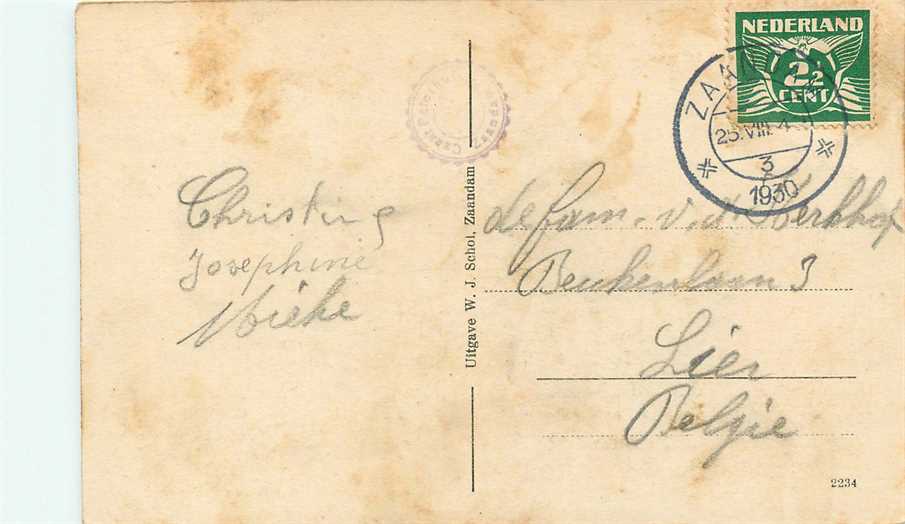 NEDERLAND
2½
CENT
25.VIII
3
1930
Christine
Josephine
Mieke
Uitgave W. J. Schol, Zaandam
de fam. v.d. Kerkhof
Beukenlaan 3
Lier
Belgie
2234